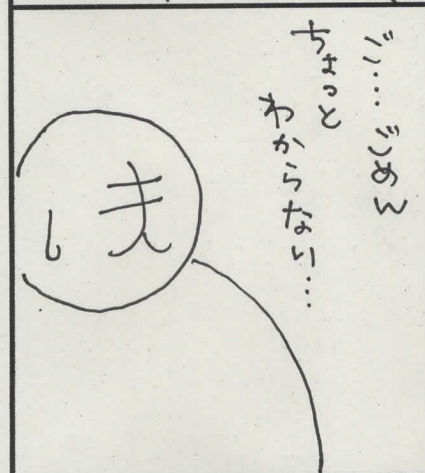 ご…ごめん
ちょっと
わからない…
し